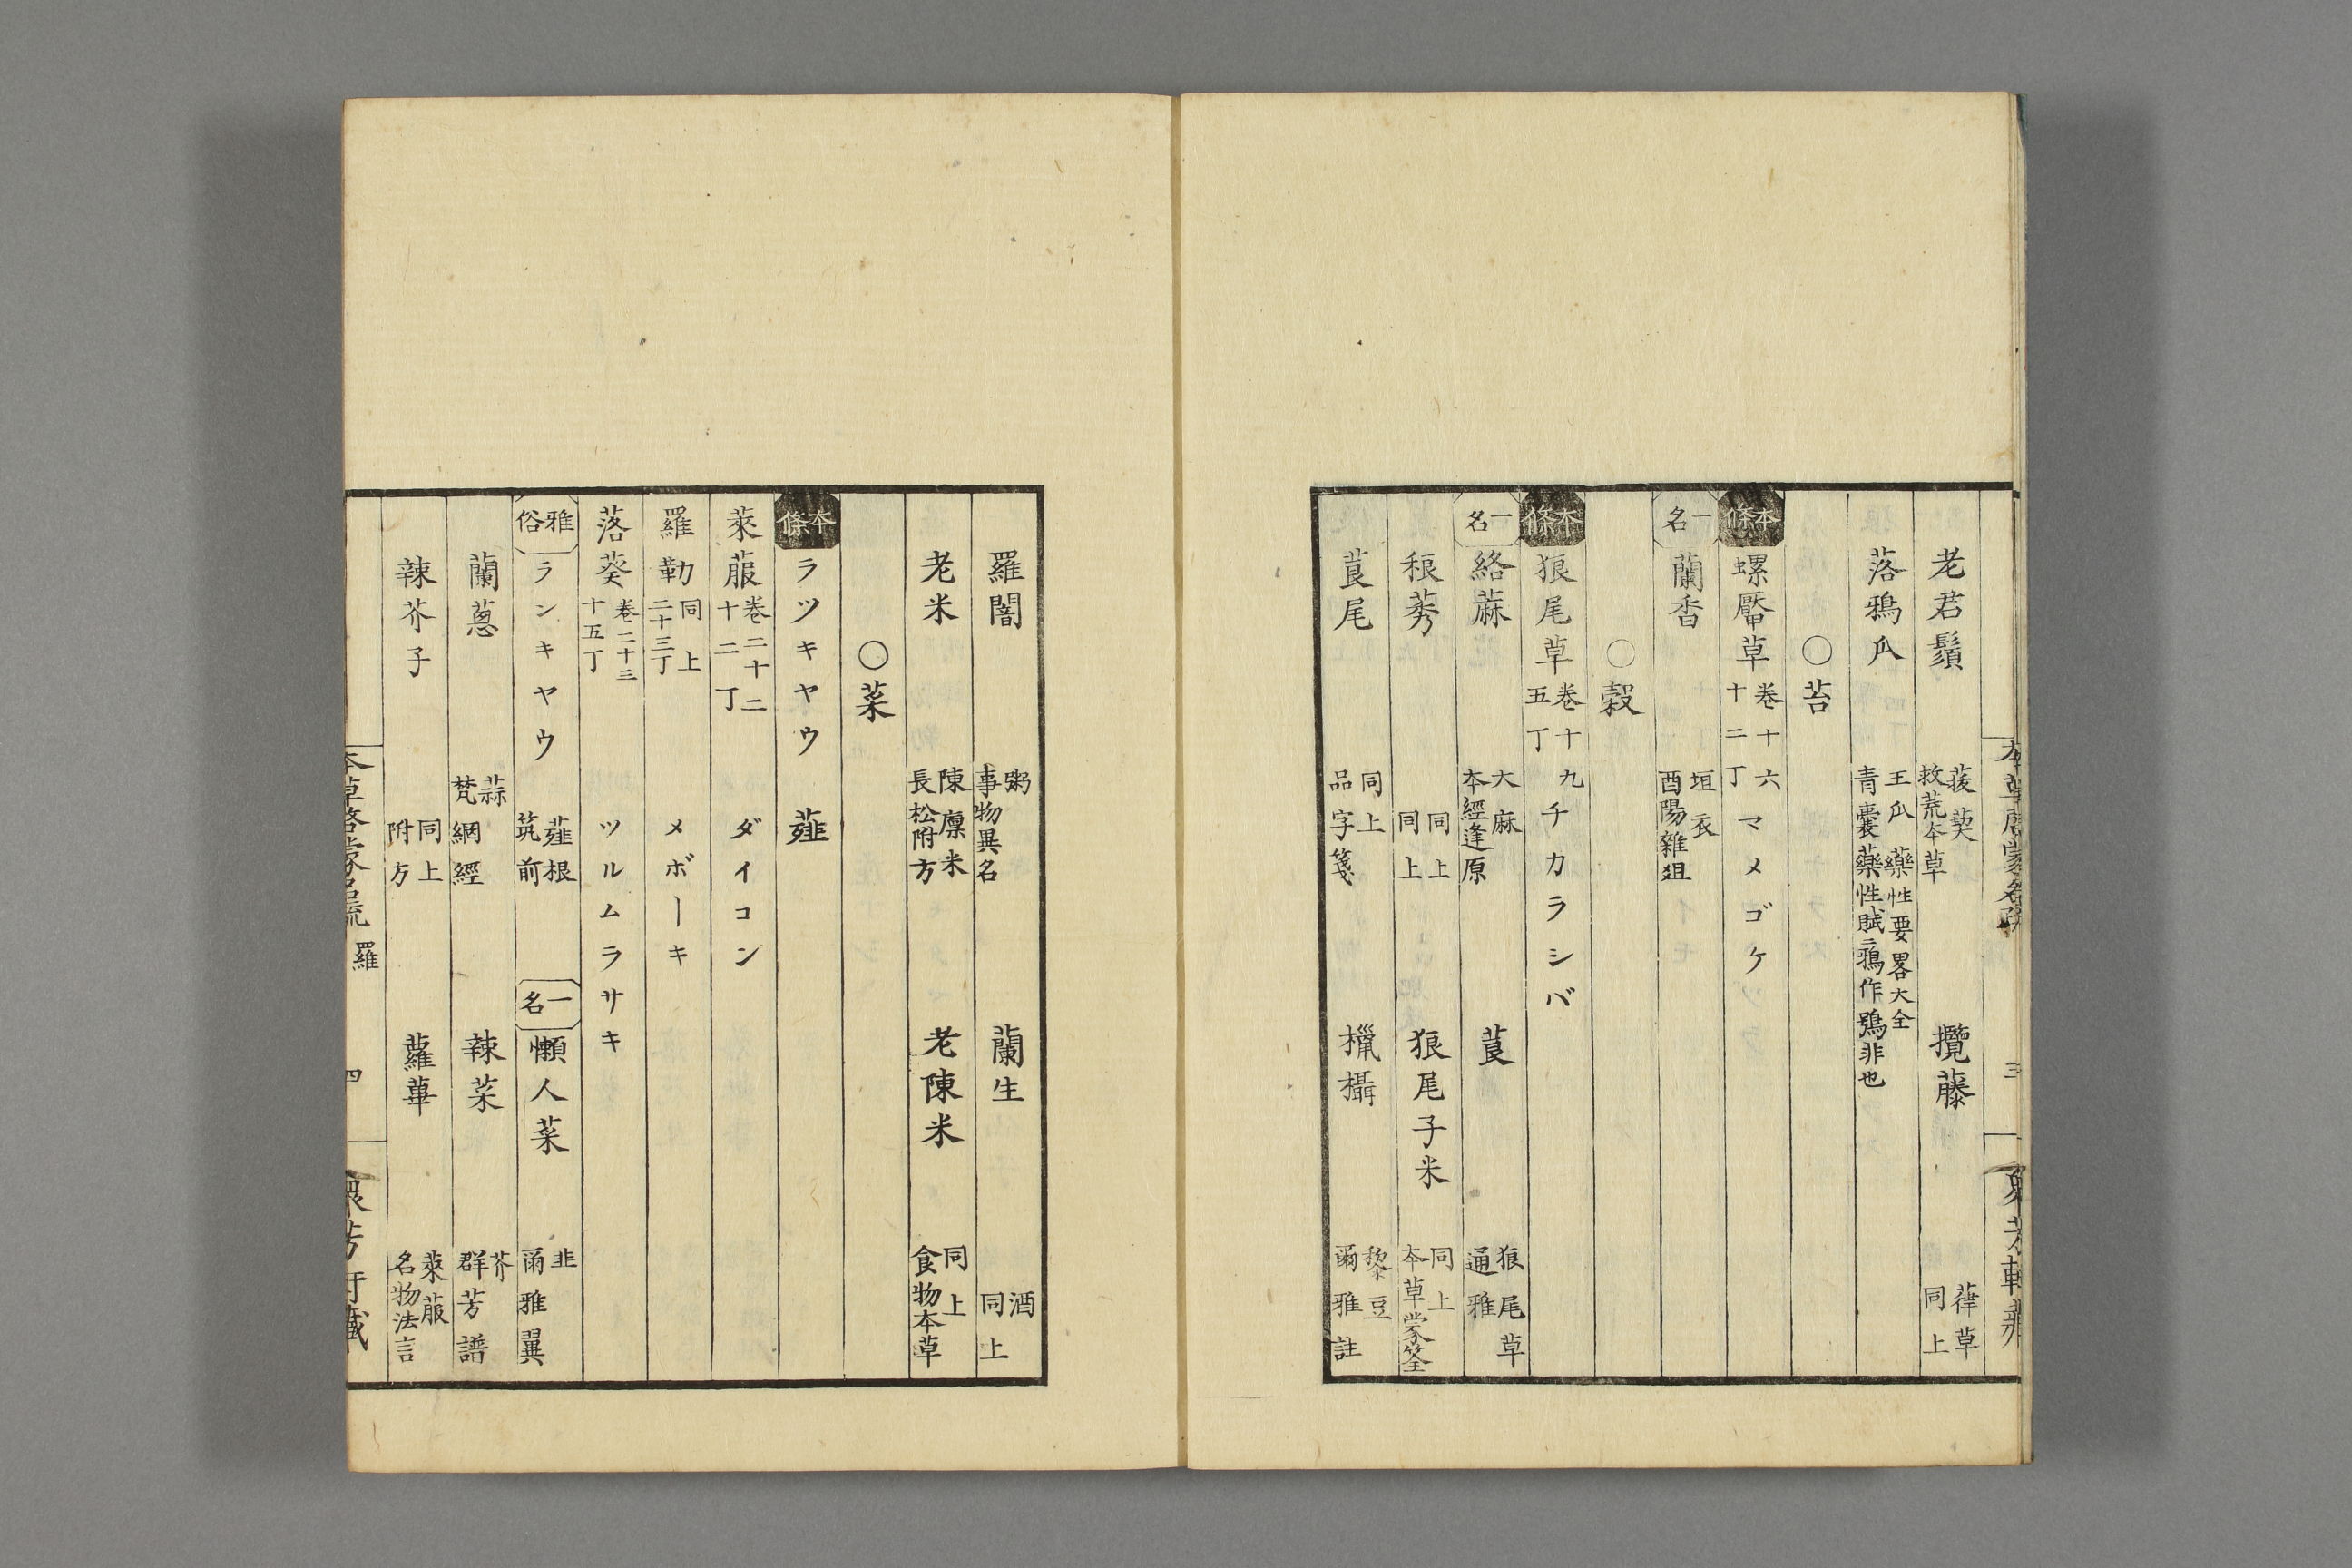 老君鬚 菝葜 救荒本草 攬藤 葎草 同上
落鴉瓜 王瓜 藥性要畧大全 青囊藥性賦ニ鴉作鵶非也
○苔
本條 螺厴草 卷十六 十二丁 マメゴケ
一名 蘭香 垣衣 酉陽雜俎
○穀
本條 狼尾草 卷十九 五丁 チカラシバ
一名 絡蔴 大麻 本經逢原 莨 狼尾草 通雅
稂莠 同上 同上 狼尾子米 同上 本草蒙筌
莨尾 同上 品字箋 欇 黎豆 爾雅註
羅闍 粥 事物異名 蘭生 酒 同上
老米 陳廩米 長松附方 老陳米 同上 食物本草
○菜
本條 ラツキヤウ 薤
萊菔 卷二十二 十二丁 ダイコン
羅勒 同上 二十三丁 メボーキ
落葵 卷二十三 十五丁 ツルムラサキ
雅俗 ランキヤウ 薤根 筑前 一名 懶人菜 韭 爾雅翼
蘭蔥 蒜 梵網經 辣菜 芥 群芳譜
辣芥子 同上 附方 蘿菶 萊菔 名物法言
本草啓蒙名疏 羅 四